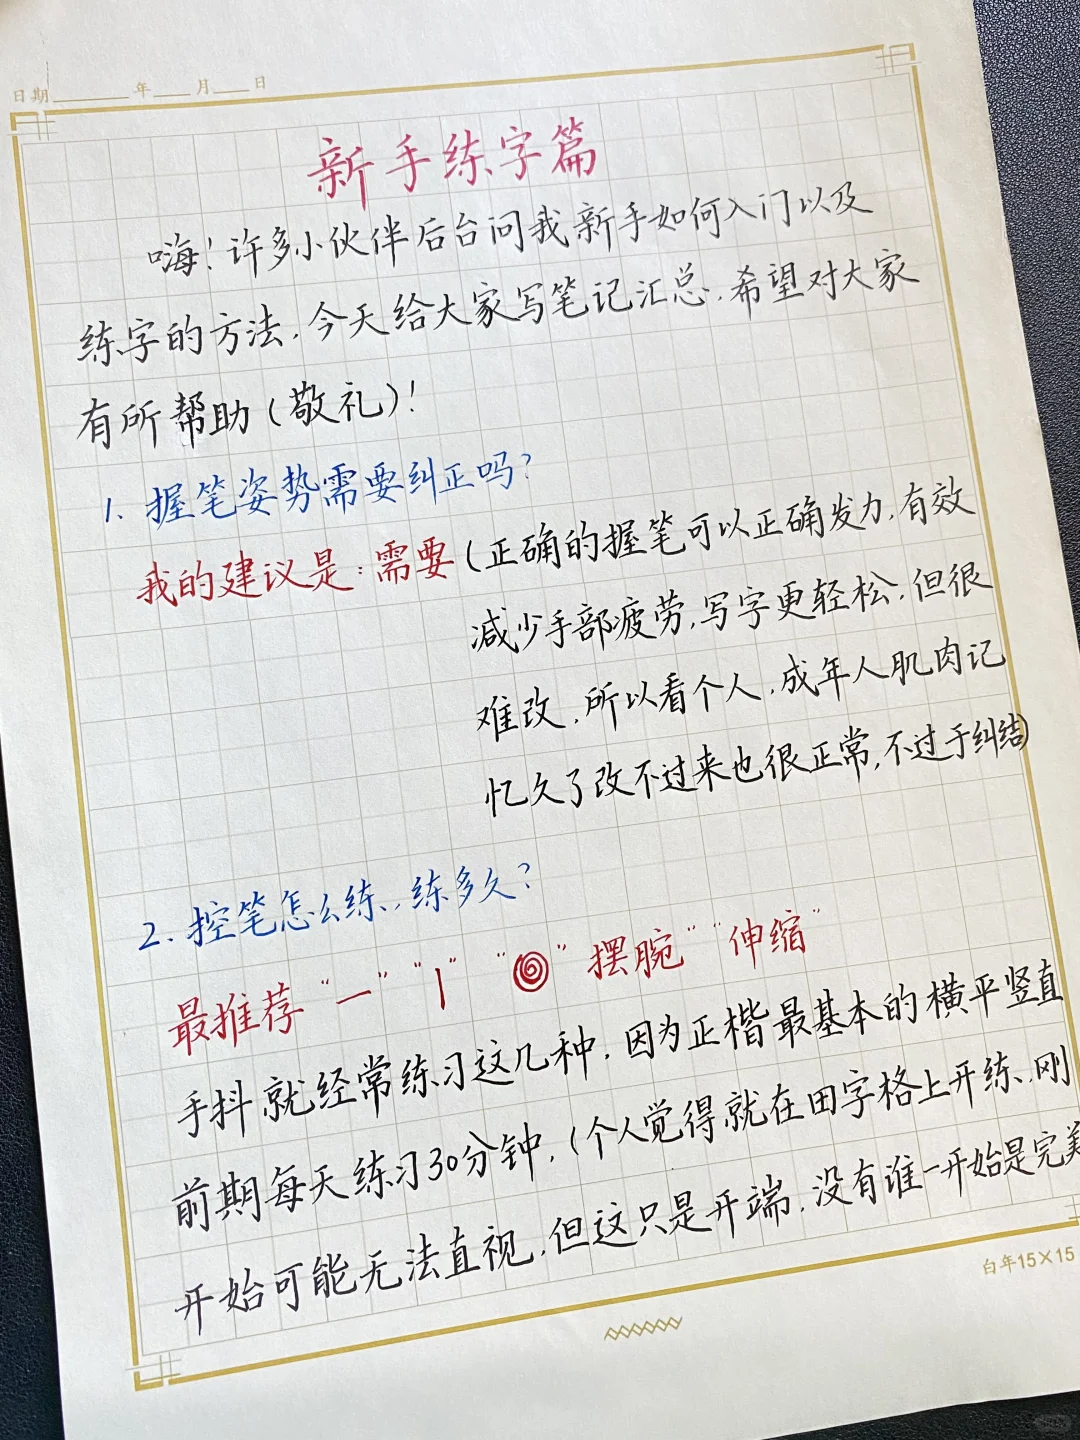 日期____年___月___日
新手练字篇
嗨！许多小伙伴后台问我新手如何入门以及
练字的方法，今天给大家写笔记汇总，希望对大家
有所帮助（敬礼）！
1、握笔姿势需要纠正吗？
我的建议是：需要（正确的握笔可以正确发力，有效
减少手部疲劳，写字更轻松，但很
难改，所以看个人，成年人肌肉记
忆久了改不过来也很正常，不过于纠结）
2、控笔怎么练，练多久？
最推荐“一”“丨”“ ”摆腕”“伸缩”
手抖就经常练习这几种，因为正楷最基本的横平竖直
前期每天练习30分钟，（个人觉得就在田字格上开练，刚
开始可能无法直视，但这只是开端，没有谁一开始是完美
白年15×15